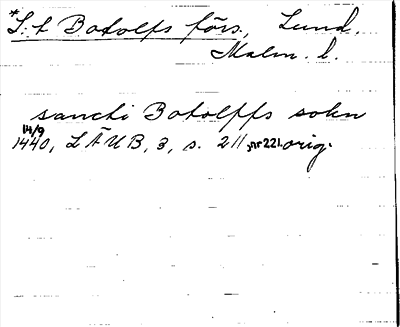 *S:t Botolfs förs., Lund.
Malm. l.
sancti Botolffs sokn
14/9
1440, LÄUB, 3, s. 211, nr 221. orig.